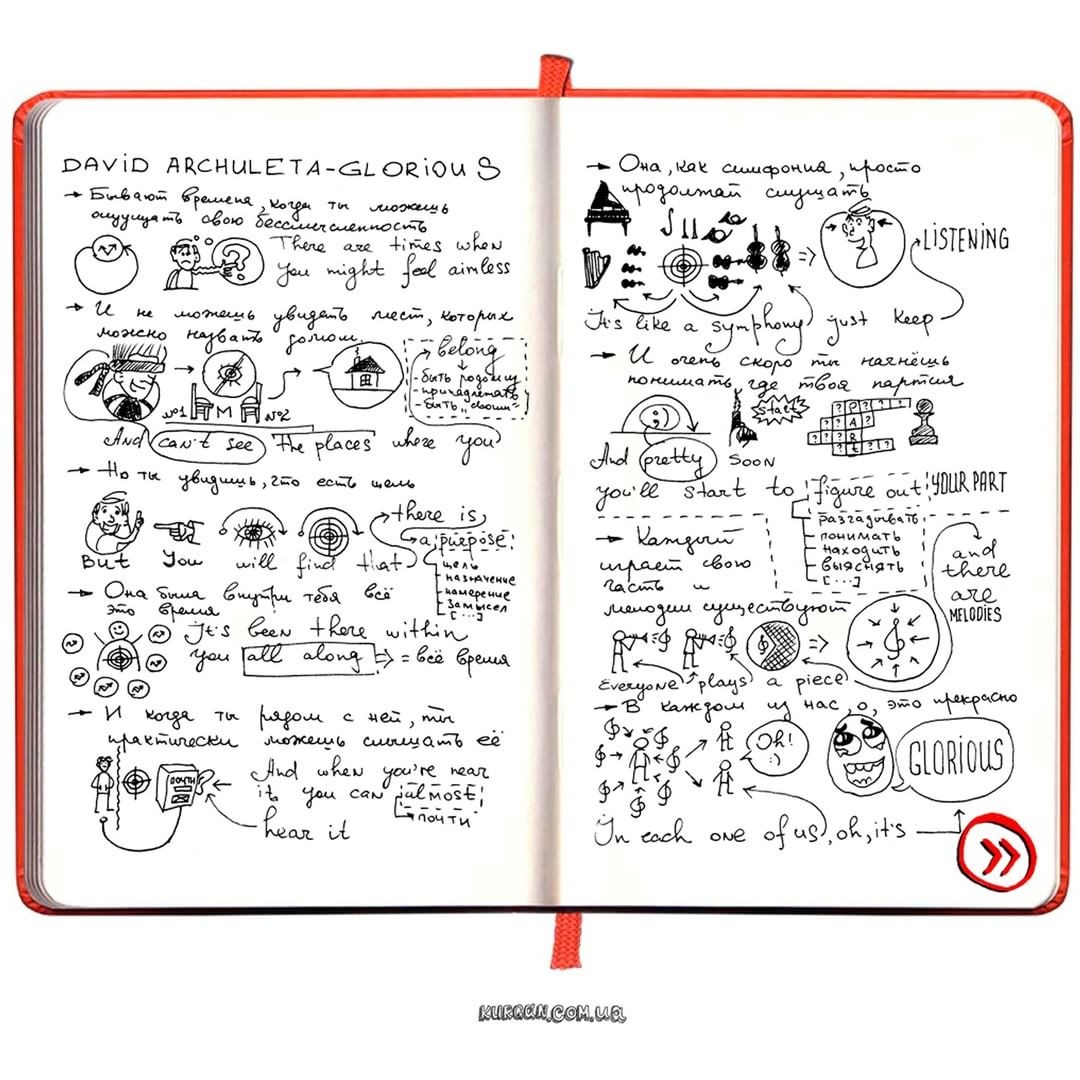 DAVID ARCHULETA-GLORIOUS
→ Бывают времена, когда ты можешь
ощущать свою бессмысленность
There are times when
you might feel aimless
→ И не можешь увидеть мест, которых
можно назвать домом.
№1
М
№2
belong
- быть родом из
- принадлежать
- быть „своим"
And can't see the places where you
→ Но ты увидишь, что есть цель
But You will find that
there is
a purpose:
цель
назначение
намерение
замысел
[...]
→ Она была внутри тебя всё
это время
It's been there within
you all along => = всё время
→ И когда ты рядом с ней, ты
практически можешь слышать её
почти
And when you're near
it, you can almost
почти
hear it
→ Она, как симфония, просто
продолжай слушать
=>
LISTENING
It's like a symphony just keep
→ И очень скоро ты начнёшь
понимать, где твоя партия
;)
start
? P ? ? ?
? A ?
? ? ? R
t ? ?
And pretty soon
you'll start to figure out YOUR PART
разгадывать
понимать
находить
выяснять
[...]
→ Каждый
играет свою
часть и
мелодии существуют
and
there
are
MELODIES
=>
Everyone plays a piece
→ В каждом из нас, о, это прекрасно
Oh!
:)
GLORIOUS
In each one of us, oh, it's
KURAAN.COM.UA